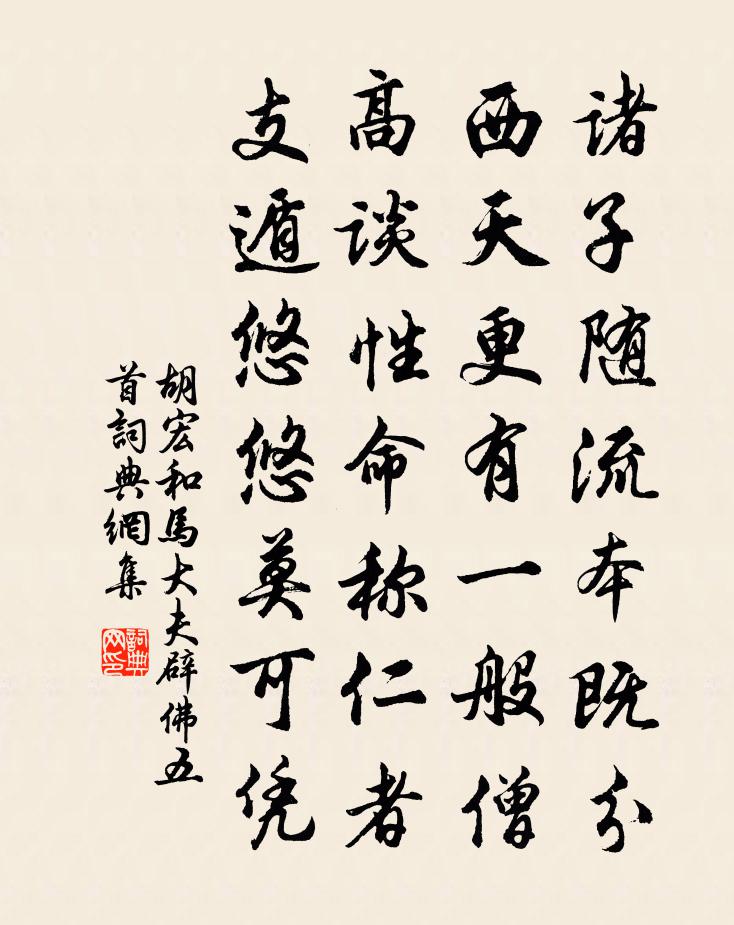 诸子随流本既分
西天更有一般僧
高谈性命称仁者
支遁悠悠莫可凭
胡宏和馬大夫辟佛五
首詞典網集
詞典网印